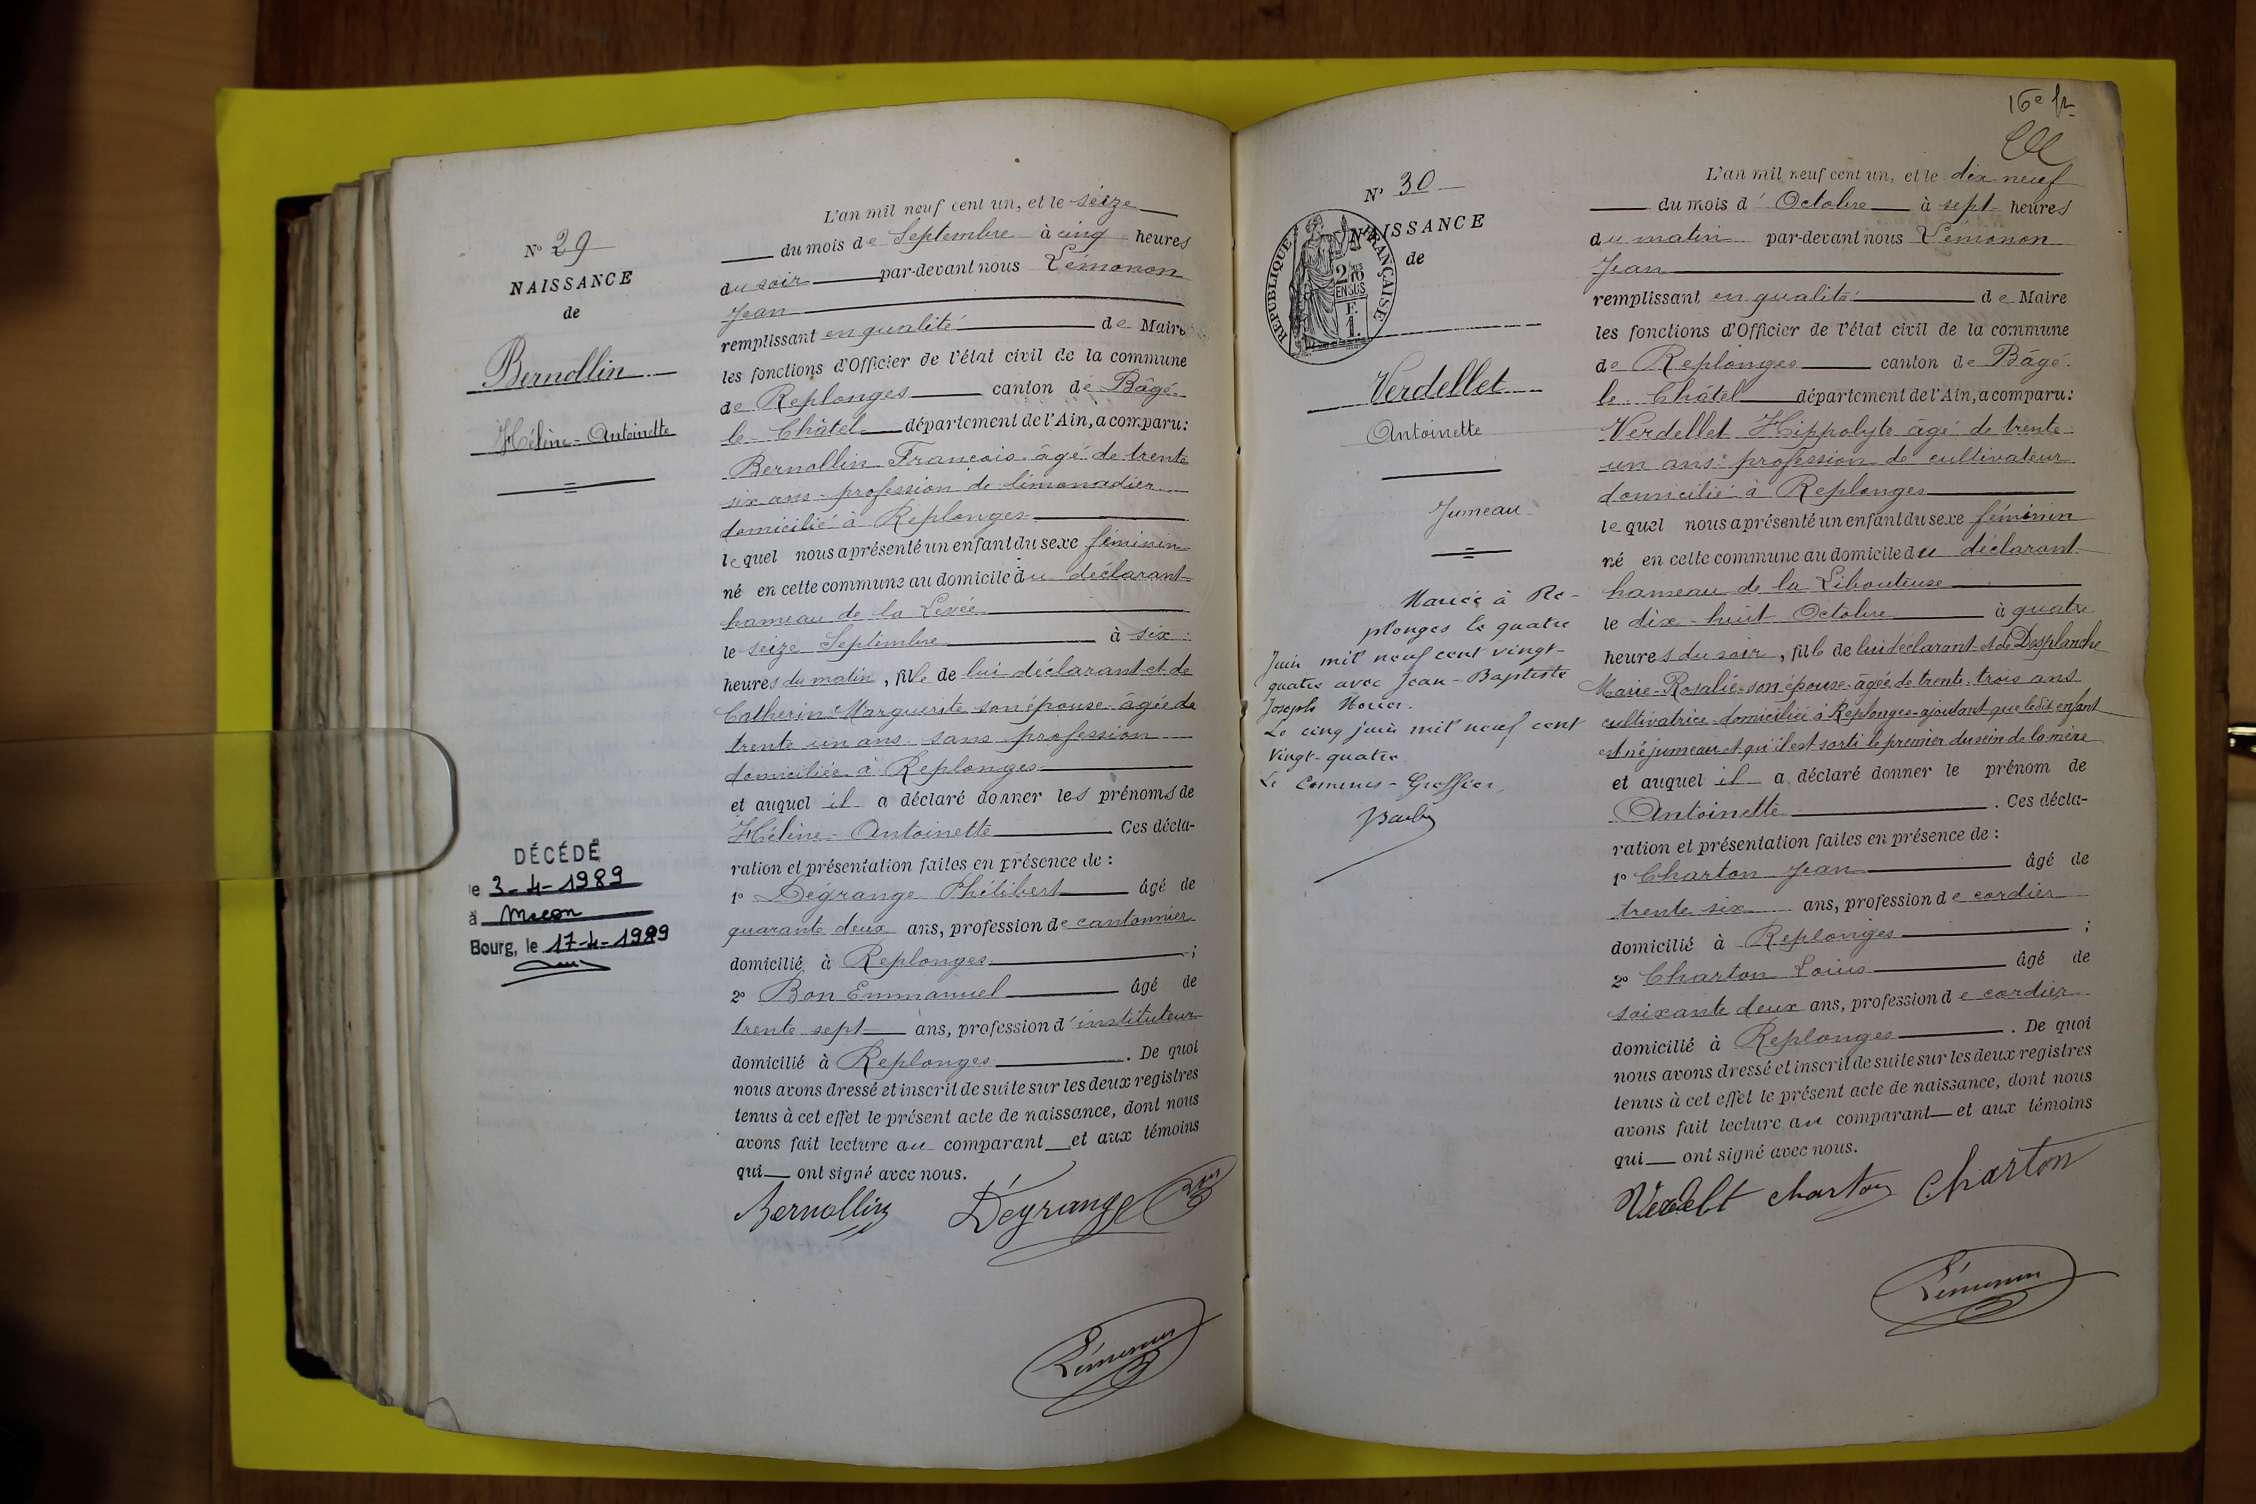 N° 29
NAISSANCE
de
Bernollin
Hélène-Antoinette
DÉCÉDÉ
le 3-4-1989
à Macon
Bourg, le 17-4-1989
L'an mil neuf cent un, et le seize
du mois de Septembre à cinq heures
du soir par-devant nous Lémonon
Jean
remplissant en qualité de Maire
les fonctions d'Officier de l'état civil de la commune
de Replonges canton de Bâgé
le Châtel département de l'Ain, a comparu:
Bernollin François âgé de trente
six ans profession de limonadier
domicilié à Replonges
lequel nous a présenté un enfant du sexe féminin
né en cette commune au domicile du déclarant
hameau de la Levée
le seize Septembre à six
heures du matin, fille de lui déclarant et de
Catherin Marguerite son épouse âgée de
trente un ans sans profession
domiciliée à Replonges
et auquel il a déclaré donner les prénoms de
Hélène-Antoinette Ces décla-
ration et présentation faites en présence de :
1° Dégrange Philibert âgé de
quarante deux ans, profession de cantonnier
domicilié à Replonges ;
2° Bon Emmanuel âgé de
trente sept ans, profession d'instituteur
domicilié à Replonges . De quoi
nous avons dressé et inscrit de suite sur les deux registres
tenus à cet effet le présent acte de naissance, dont nous
avons fait lecture au comparant et aux témoins
qui ont signé avec nous.
Bernollin Dégrange Bon
Lémonon
16e
N° 30
NAISSANCE
de
RÉPUBLIQUE FRANÇAISE
2/10
EN SUS
F.
1.
Verdellet
Antoinette
Jumeau
Mariée à Re-
plonges le quatre
Juin mil neuf cent vingt-
quatre avec Jean-Baptiste
Joseph
Le cinq juin mil neuf cent
vingt-quatre
Le Commis-Greffier,
L'an mil neuf cent un, et le dix neuf
du mois d'Octobre à sept heures
du matin par-devant nous Lémonon
Jean
remplissant en qualité de Maire
les fonctions d'Officier de l'état civil de la commune
de Replonges canton de Bâgé
le Châtel département de l'Ain, a comparu:
Verdellet Hippolyte âgé de trente
un ans profession de cultivateur
domicilié à Replonges
lequel nous a présenté un enfant du sexe féminin
né en cette commune au domicile du déclarant
hameau de la Libouteuse
le dix-huit Octobre à quatre
heures du soir, fille de lui déclarant et de Desplanche
Marie-Rosalie son épouse âgée de trente trois ans
cultivatrice domiciliée à Replonges ajoutant que ledit enfant
est né jumeau et qu'il est sorti le premier du sein de la mère
et auquel il a déclaré donner le prénom de
Antoinette . Ces décla-
ration et présentation faites en présence de :
1° Charton Jean âgé de
trente six ans, profession de cordier
domicilié à Replonges ;
2° Charton Louis âgé de
soixante deux ans, profession de cordier
domicilié à Replonges . De quoi
nous avons dressé et inscrit de suite sur les deux registres
tenus à cet effet le présent acte de naissance, dont nous
avons fait lecture au comparant et aux témoins
qui ont signé avec nous.
charton Charton
Lémonon